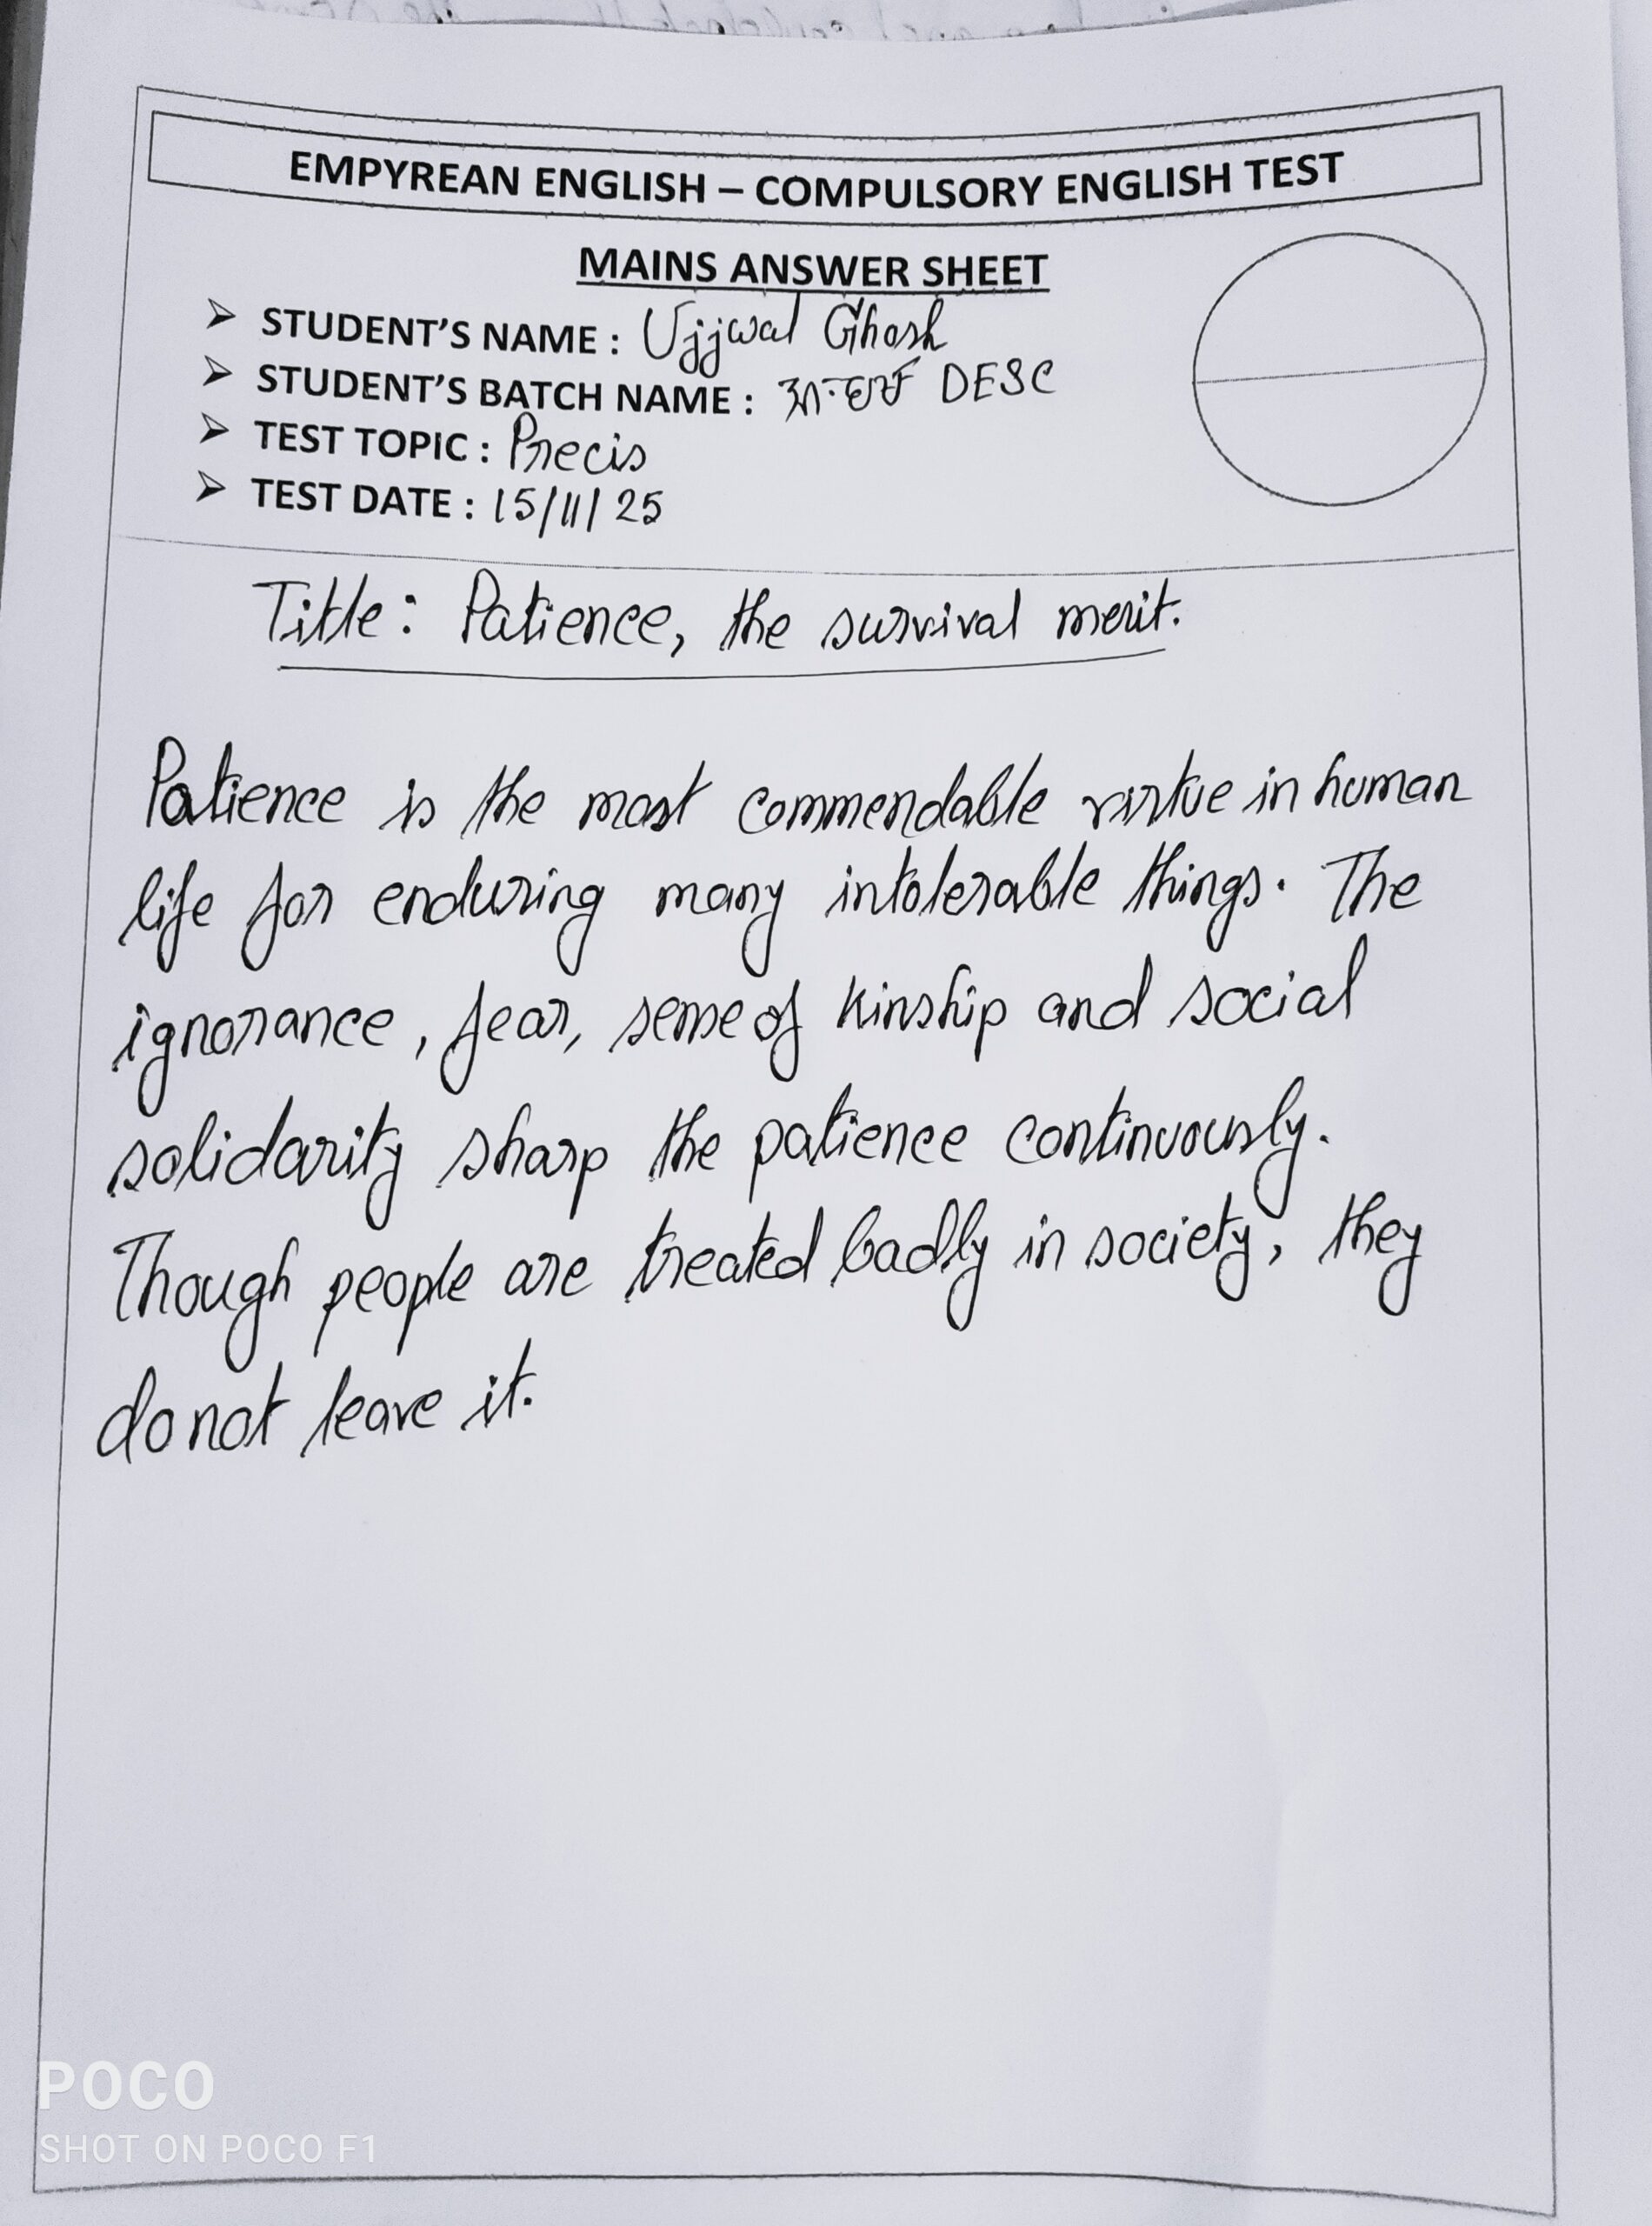 EMPYREAN ENGLISH – COMPULSORY ENGLISH TEST
MAINS ANSWER SHEET
➢ STUDENT'S NAME : Ujjwal Ghosh
➢ STUDENT'S BATCH NAME : DESC
➢ TEST TOPIC : Precis
➢ TEST DATE : 15/11/25
Title: Patience, the survival merit.
Patience is the most commendable virtue in human
life for enduring many intolerable things. The
ignorance, fear, sense of kinship and social
solidarity sharp the patience continuously.
Though people are treated badly in society, they
do not leave it.
POCO
SHOT ON POCO F1